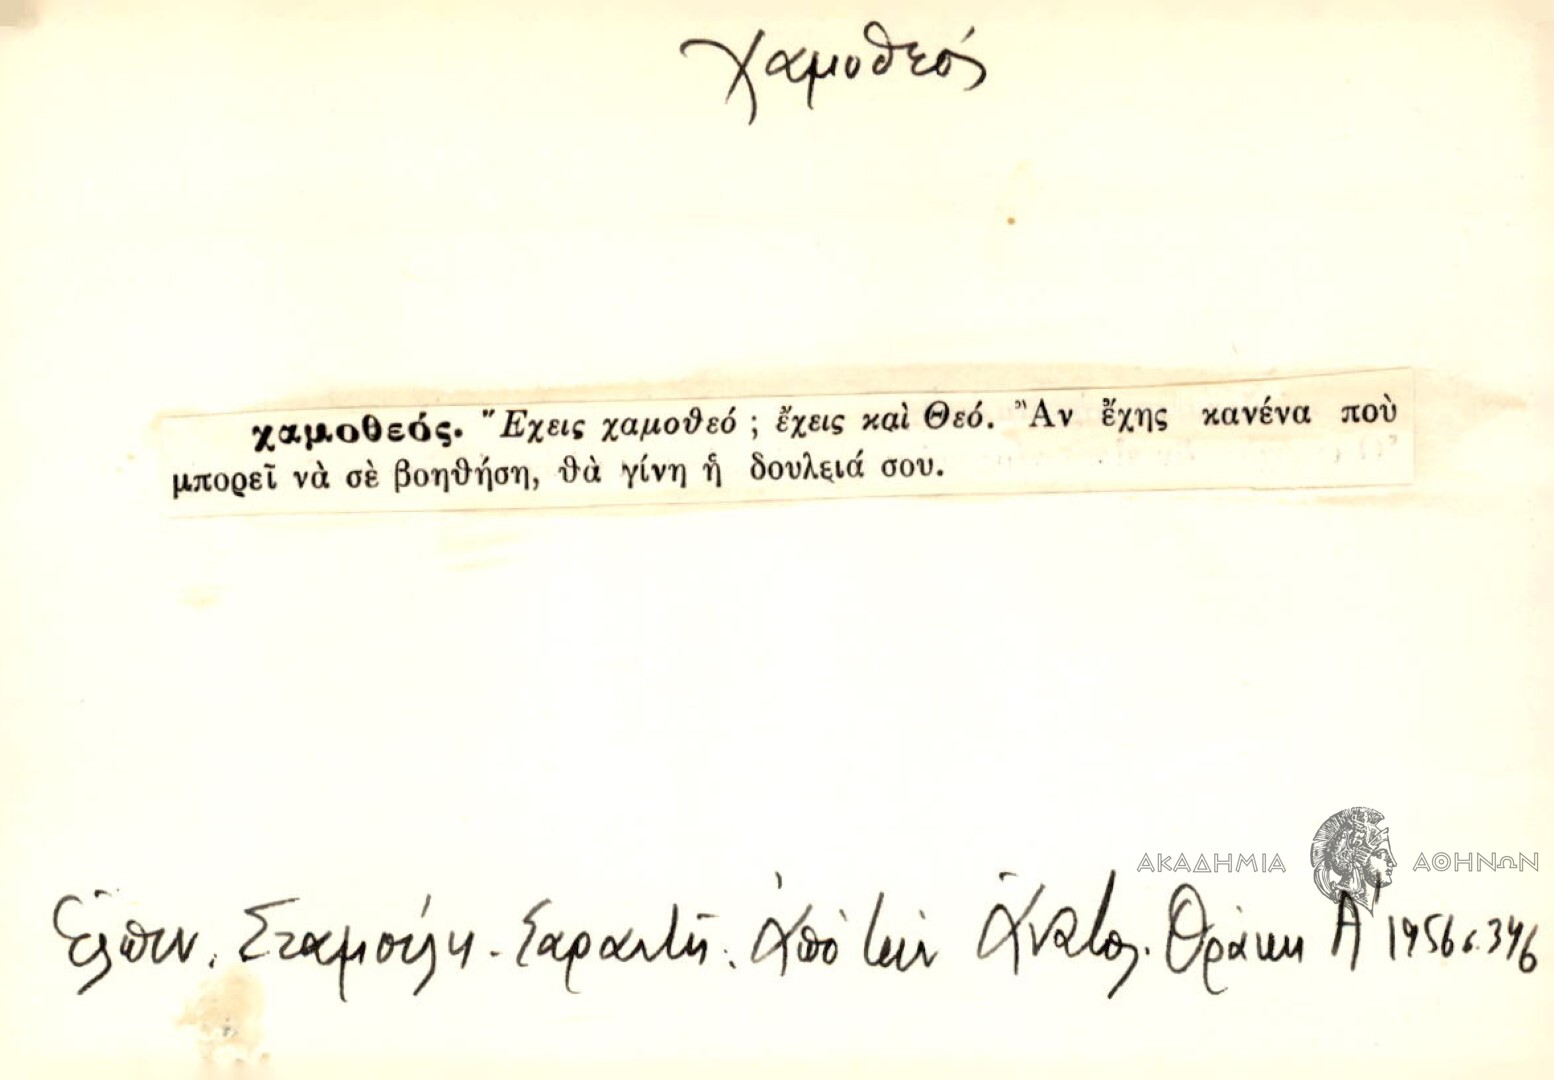 χαμοθεός
χαμοθεός. Ἔχεις χαμοθεό ; ἔχεις καὶ Θεό. Ἂν ἔχης κανένα ποὺ
μπορεῖ νὰ σὲ βοηθήση, θὰ γίνη ἡ δουλειά σου.
ΑΚΑΔΗΜΙΑ ΑΘΗΝΩΝ
Ἐλπιν. Σταμούλη - Σαραντῆ. Ἀπὸ τὴν Ἀνατολ. Θράκη Α' 1956 σ. 346